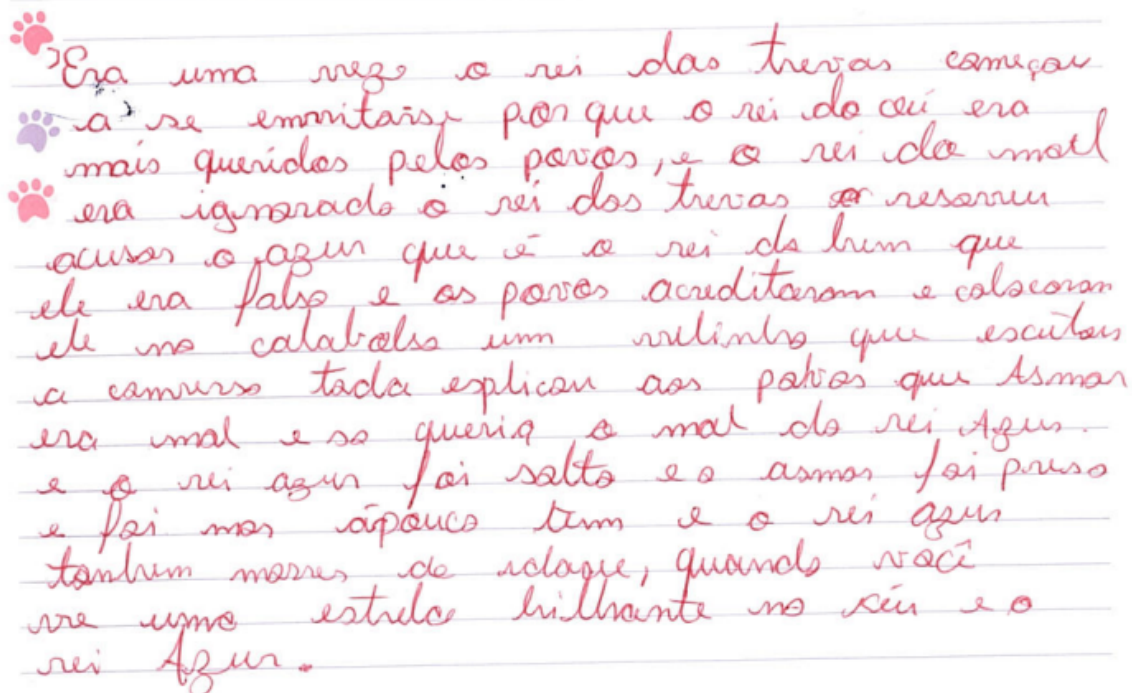 Era uma vez o rei das trevas começou
a se emvitarse por que o rei do ceú era
mais queridos pelos povos, e o rei do mall
era ignorado o rei das trevas resorveu
acusar o azur que é o rei do bem que
ele era falso e os povos acreditaram e colocaram
ele no calabolso um velinho que escutou
a comverso toda esplicou aos povos que Asmar
era mal e so queria o mal do rei Azur.
e o rei azur foi solto e o asmar foi preso
e foi mor apouco tem e o rei azur
tanbem morreu de idade, quando você
vre uma estrela brilhante no séu e o
rei Azur.